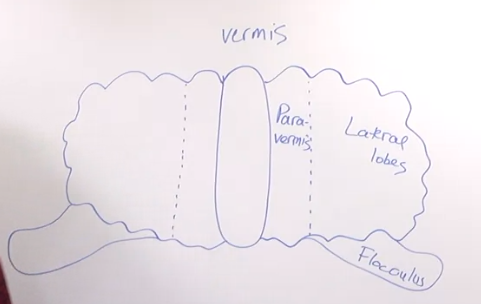 vermis
Para-
vermis
Lateral
lobes
Flocculus